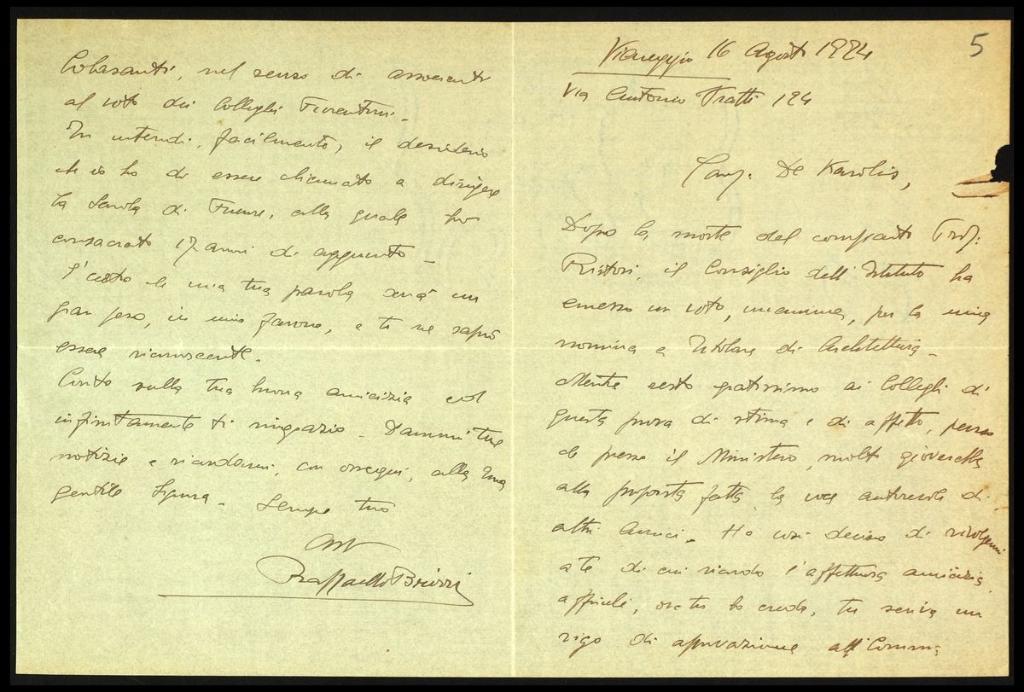 5
Viareggio 16 Agosto 1924
Via Antonio Fratti 124
Caro De Karolis,
Dopo la morte del compianto Prof.
Ristori, il Consiglio dell'Istituto ha
emesso un voto, unanime, per la mia
nomina a Titolare di Architettura -
Mentre resto gratissimo ai Colleghi di
questa prova di stima e di affetto, penso
che presso il Ministero, molto gioverebbe
alla proposta fatta la voce autorevole di
altri amici. Ho così deciso di rivolgermi
a te di cui ricordo l'affettuosa amicizia
affinché, ove tu lo creda, tu scriva un
rigo di approvazione all Comm.
Colasanti, nel senso di associarti
al voto dei Colleghi Fiorentini -
Tu intendi, facilmente, il desiderio
ch'io ho di essere chiamato a dirigere
la Scuola di Firenze, alla quale ho
consacrato 17 anni di
una tua parola avrà un
gran peso, in mio favore, e te ne saprò
essere riconoscente.
Conto sulla tua buona amicizia ed
infinitamente ti ringrazio - Dammi tue
notizie e ricordami, con ossequi, alla tua
gentile Signora - Sempre tuo
Raffaello Brizzi